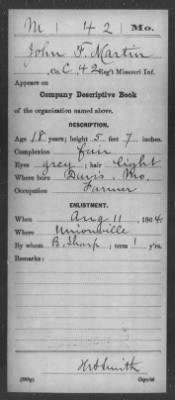 M | 42 | Mo.
John F. Martin
, Co. C, 42 Reg't Missouri Inf.
Appears on
Company Descriptive Book
of the organization named above.
DESCRIPTION.
Age 18 years; height 5 feet 7 inches.
Complexion fair
Eyes grey; hair light
Where born Davis, Mo.
Occupation Farmer
ENLISTMENT.
When Aug 11, 1864.
Where Unionville
By whom B. Sharp; term 1 y'rs.
Remarks:
Smith
Copyist